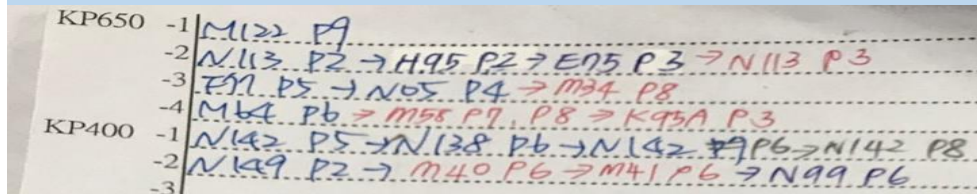 KP650 -1 M122 P9
-2 N113 P2 → H95 P2 → E75 P3 → N113 P3
-3 P5 → N05 P4 → M34 P8
-4 M64 P6 → M58 P7, P8 → K95A P3
KP400 -1 N142 P5 → N138 P6 → N142 P6 → N142 P8
-2 N149 P2 → M40 P6 → M41 P6 → N99 P6
-3